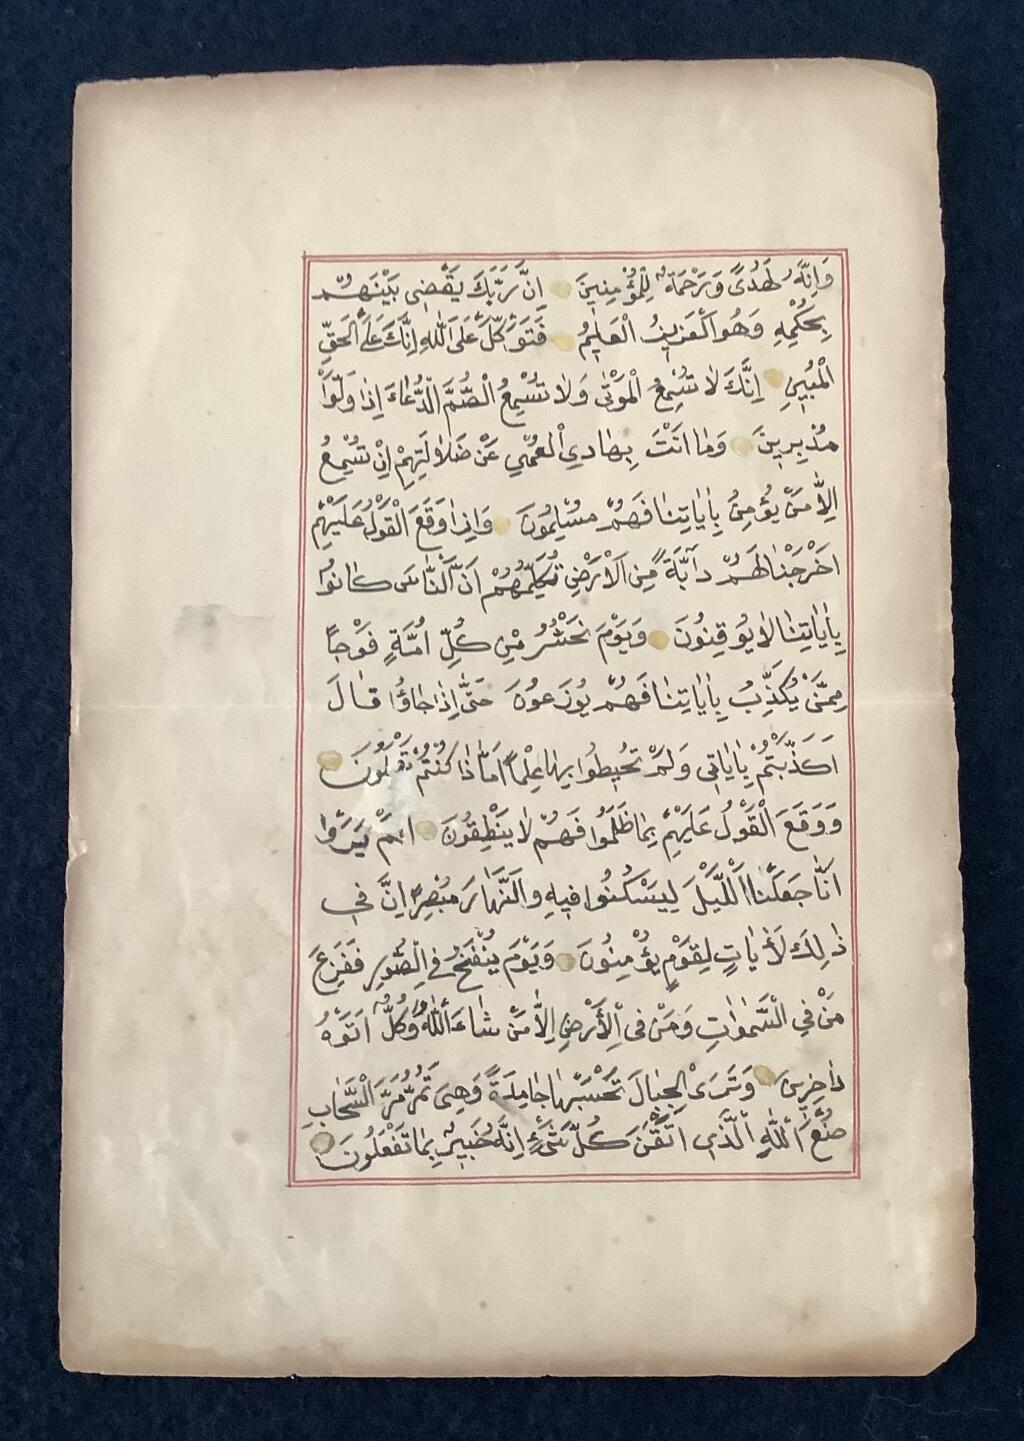 وَاِنَّهُ لَهُدًى وَرَحْمَةٌ لِلْمُؤْمِنِينَ اِنَّ رَبَّكَ يَقْضِى بَيْنَهُمْ
بِحُكْمِهِ وَهُوَ الْعَزِيزُ الْعَلِيمُ فَتَوَكَّلْ عَلَى اللّٰهِ اِنَّكَ عَلَى الْحَقِّ
الْمُبِينِ اِنَّكَ لَا تُسْمِعُ الْمَوْتٰى وَلَا تُسْمِعُ الْصُّمَّ الْدُّعَاءَ اِذَا وَلَّوْا
مُدْبِرِينَ وَمَا اَنْتَ بِهَادِي الْعُمْيِ عَنْ ضَلَالَتِهِمْ اِنْ تُسْمِعُ
اِلَّا مَنْ يُؤْمِنُ بِاٰيَاتِنَا فَهُمْ مُسْلِمُونَ وَاِذَا وَقَعَ الْقَوْلُ عَلَيْهِمْ
اَخْرَجْنَا لَهُمْ دَآبَّةً مِنَ الْاَرْضِ تُكَلِّمُهُمْ اَنَّ الْنَّاسَ كَانُوا
بِاٰيَاتِنَا لَا يُوقِنُونَ وَيَوْمَ نَحْشُرُ مِنْ كُلِّ اُمَّةٍ فَوْجًا
مِمَّنْ يُكَذِّبُ بِاٰيَاتِنَا فَهُمْ يُوزَعُونَ حَتَّى اِذَا جَاؤُا قَالَ
اَكَذَّبْتُمْ بِاٰيَاتِي وَلَمْ تُحِيطُوا بِهَا عِلْمًا اَمَّا ذَا كُنْتُمْ تَعْمَلُونَ
وَوَقَعَ الْقَوْلُ عَلَيْهِمْ بِمَا ظَلَمُوا فَهُمْ لَا يَنْطِقُونَ اَلَمْ يَرَوْا
اَنَّا جَعَلْنَا الْلَّيْلَ لِيَسْكُنُوا فِيهِ وَالْنَّهَارَ مُبْصِرًا اِنَّ فِي
ذٰلِكَ لَأٰيَاتٍ لِقَوْمٍ يُؤْمِنُونَ وَيَوْمَ يُنْفَخُ فِي الْصُّورِ فَفَزِعَ
مَنْ فِي الْسَّمٰوَاتِ وَمَنْ فِى الْأَرْضِ اِلَّا مَنْ شَاءَ اللّٰهُ وَكُلٌّ اَتَوْهُ
دَاخِرِينَ وَتَرَى الْجِبَالَ تَحْسَبُهَا جَامِدَةً وَهِىَ تَمُرُّ مَرَّ الْسَّحَابِ
صُنْعَ اللّٰهِ الَّذِى اَتْقَنَ كُلَّ شَىْءٍ اِنَّهُ خَبِيرٌ بِمَا تَفْعَلُونَ